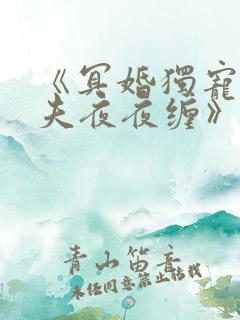 《冥婚獨寵
夫夜夜缠》
青山笛音
未经同意禁止转载